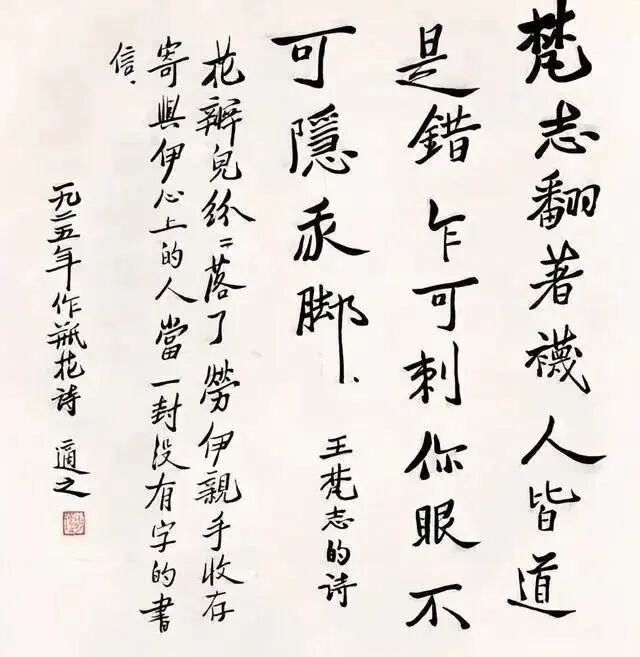 梵志翻著襪人皆道
是錯乍可刺你眼不
可隱我脚.
王梵志的詩
花瓣兒紛〻落了勞伊親手收存
寄與伊心上的人當一封没有字的書
信.
一九二五年作瓶花詩 適之